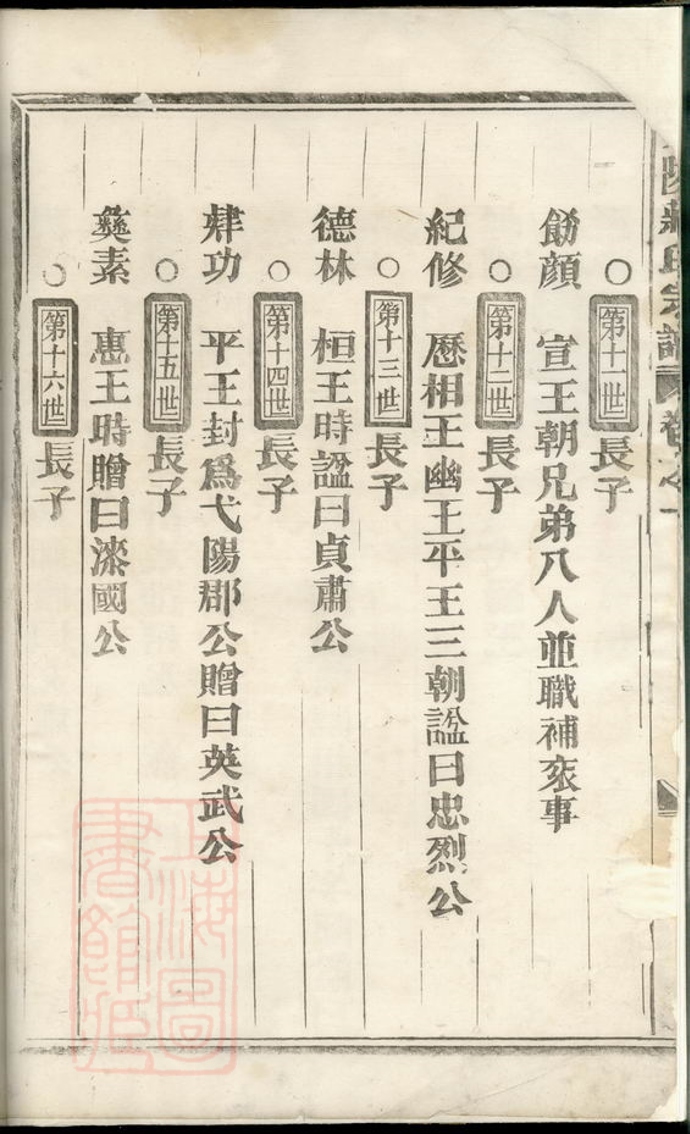 陽蔣氏宗譜 卷之一
○第十一世長子
飭顏 宣王朝兄弟八人並職補袞事
○第十二世長子
紀修 歷相王幽王平王三朝諡曰忠烈公
○第十三世長子
德林 桓王時諡曰貞肅公
○第十四世長子
肆功 平王封爲弋陽郡公贈曰英武公
○第十五世長子
彝素 惠王時贈曰漆國公
○第十六世長子
上海圖
書館藏